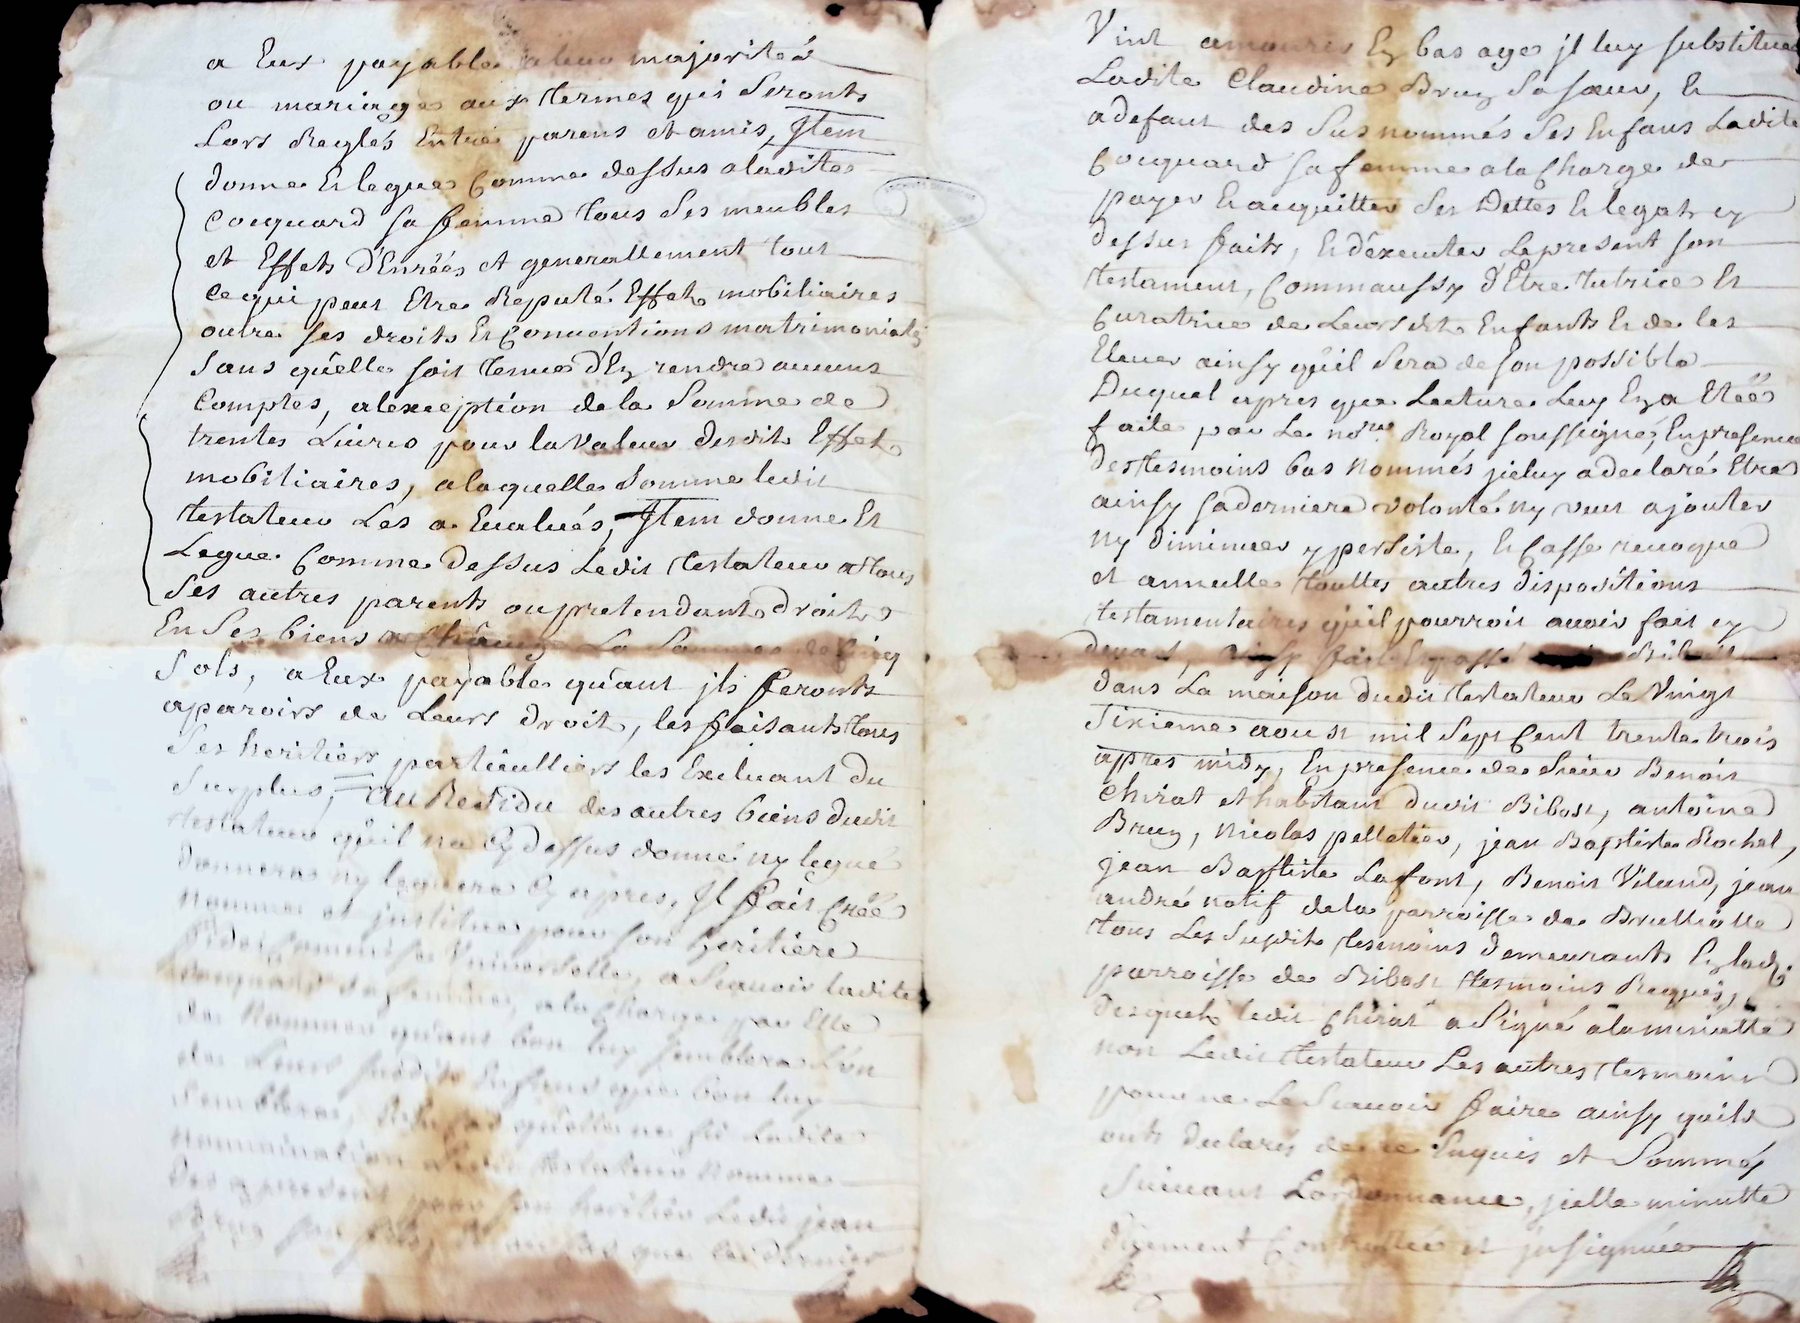 a Eux payable a leur majoritéé
ou mariage aux termes qui Seronts
Lors Reglés Entre parens et amis, Jtem
donne Et legue Comme dessus a ladite
Coquard sa femme tous Ses meubles
et Effets d'Enréés et generallement tout
Ce qui peut Etre Reputé Effets mobiliaires
outre ses droits Et Conventions matrimoniales
Sans qu'elle soit tenue d'En rendre aucuns
Comptes, a lexception de la Somme de
trentes Livres pour la valeur desdits Effets
mobiliaires, a laquelle Somme ledit
testateur Les a Evalués, Jtem donne Et
Legue Comme dessus Ledit testateur a tous
Ses autres parents ou pretendants droits
En Ses biens a Chacun La Somme de Cinq
Sols, a Eux payable qu'ant jls feronts
aparoirs de Leurs droits, les faisants tous
Ses heritiers particulliers les Excluant du
Surplus, au Residu des autres biens dudit
testateur qu'il na Cy dessus donné ny legué
donnera ny leguera Cy apres, Jl fait Créé
nomme et justitue pour son heritiere
Universelle, a Scauoir ladite
Coquard sa femme, a la Charge par Elle
de Nommer quant bon luy semblera L'un
de Leurs susdits Enfans que bon luy
Semblera, qu'elle ne fit Ladite
nommination Ledit testateur nomme
des a present pour son heritier Ledit jean
Bruy son fils, que Ce dernier
Vint a mourir En bas age jl luy substitue
Ladite Claudine Bruy Sa sœur, Et
a defaut des Susnommés Ses Enfans Ladite
Coquard sa femme a la Charge de
payer Et acquitter Ses Dettes Et legats cy
dessus faits, Et d'éxecuter Le present son
testament, Comm aussy d'Etre tutrice Et
Curatrice de Leursdits Enfants Et de les
Elever ainsy qu'il Sera de son possible
Duquel apres que Lecture Luy En a Etéé
faite par Le nore Royal soussigné, En presence
des tesmoins bas nommés jceluy a declaré Etre
ainsy sa derniere volonté ny veut ajouter
ny diminuer y persiste, Et Casse revoque
et annulle touttes autres dispositions
testamentaires qu'il pourroit avoir fait cy
devant, ainsy fait Et passé Bibost
dans La maison dudit testateur Le Vingt
Sixieme aoust mil Sept Cent trente trois
apres midy, En presence de Sieur Benoit
Chirat et habitant dudit Bibost, antoine
Bruy, Nicolas pelletier, jean Baptiste Rochel,
jean Baptiste Lafont, Benoit Viland, jean
andré natif de la parroisse de Brulliolle
tous Les Susdits tesmoins demeurants En lade
parroisse de Bibost tesmoins Requis,
desquels ledit Chirat a Signé a la minutte
non Ledit testateur Les autres tesmoins
pour ne Le Scauoir faire ainsy quils
onts declarés de ce Enquis et Sommés
Suiuant Lordonnance, jcelle minutte
düement Controllée et jnsignuée